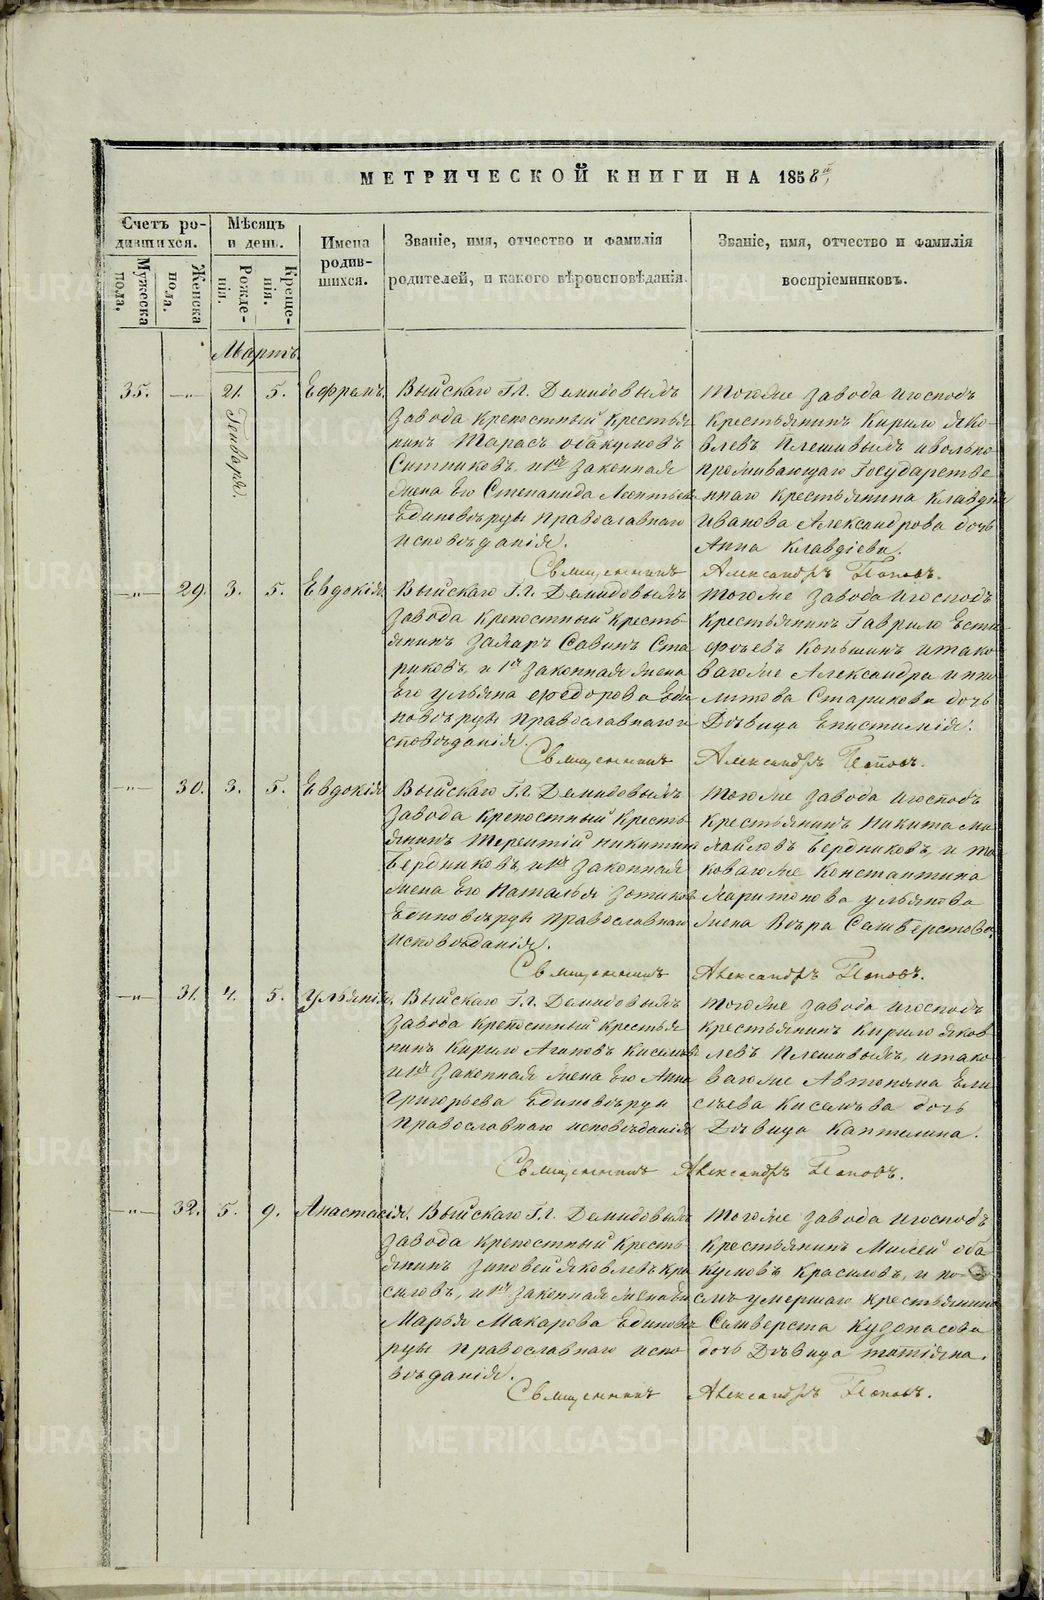 МЕТРИЧЕСКОЙ КНИГИ НА 1858й,
Счетъ ро-
дившихся.
Мѣсяцъ
и день.
Имена
родив-
шихся.
Званіе, имя, отчество и фамилія
родителей, и какого вѣроисповѣданія.
Званіе, имя, отчество и фамилія
воспріемниковъ.
Мужеска
пола.
Женска
пола.
Рожде-
нія.
Креще-
нія.
Мартъ
35. —„— 21. Генваря. 5. Ефремъ.
Выйскаго Гг. Демидовыхъ
завода крепостный крестья
нинъ Тарасъ Обакумовъ
Ситниковъ, и законная
жена Его Степанида Леонтьева
Единовѣрцы Православнаго
исповѣданія.
тогоже завода и господъ
крестьянинъ Кирило Яко-
влевъ Плешивыхъ и вольно
проживающаго Государстве
ннаго крестьянина Клавдія
Иванова Александрова дочь
Анна Клавдіева.
Священникъ Александръ Поповъ.
—„— 29. 3. 5. Евдокія.
Выйскаго Гг. Демидовыхъ
завода крепостный кресть-
янинъ Захаръ Савинъ Ста
риковъ, и законная жена
Его Ульяна Федорова Еди
новѣрцы Православнаго и
споведанія.
тогоже завода и господъ
крестьянинъ Гаврило Ести
фѣевъ Коньшинъ и тако
вагоже Александра Иппо
литова Старикова дочь
Дѣвица Епистимія.
Священникъ Александръ Поповъ.
—„— 30. 3. 5. Евдокія
Выйскаго Гг. Демидовыхъ
завода крепостный кресть
янинъ Терентій Никитинъ
Бердниковъ, и законная
жена Его Наталья Зотиков
Единовѣрцы Православнаго
исповѣданія.
тогоже завода и господъ
крестьянинъ Никита Ми
хайловъ Бердниковъ, и та
ковагоже Константина
Харитонова Ульянова
жена Вѣра Селиверстова.
Священникъ Александръ Поповъ.
—„— 31. 4. 5. Ульянія.
Выйскаго Гг. Демидовыхъ
завода крепостный крестья
нинъ Кирило Агаповъ Киселевъ
и законная жена Его Анна
Григорьева Единовѣрцы
Православнаго исповѣданія
тогоже завода и господъ
крестьянинъ Кирило Яков
левъ Плешивыхъ, и тако
вагоже Автонома Ели
сѣева Киселѣва дочь
Дѣвица Каптелина.
Священникъ Александръ Поповъ.
—„— 32. 5. 9. Анастасія.
Выйскаго Гг. Демидовыхъ
завода крепостный кресть
янинъ Зиновей Яковлевъ Кра
силовъ, и законная жена Его
Марья Макарова Единовѣ
рцы Православнаго испо
вѣданія.
тогоже завода и господъ
крестьянинъ Мисей Оба
кумовъ Красиловъ, и по
слѣ умершаго крестьянина
Селиверста Кудопасова
дочь Дѣвица Татіяна.
Священникъ Александръ Поповъ.
METRIKI.GASO-URAL.RU